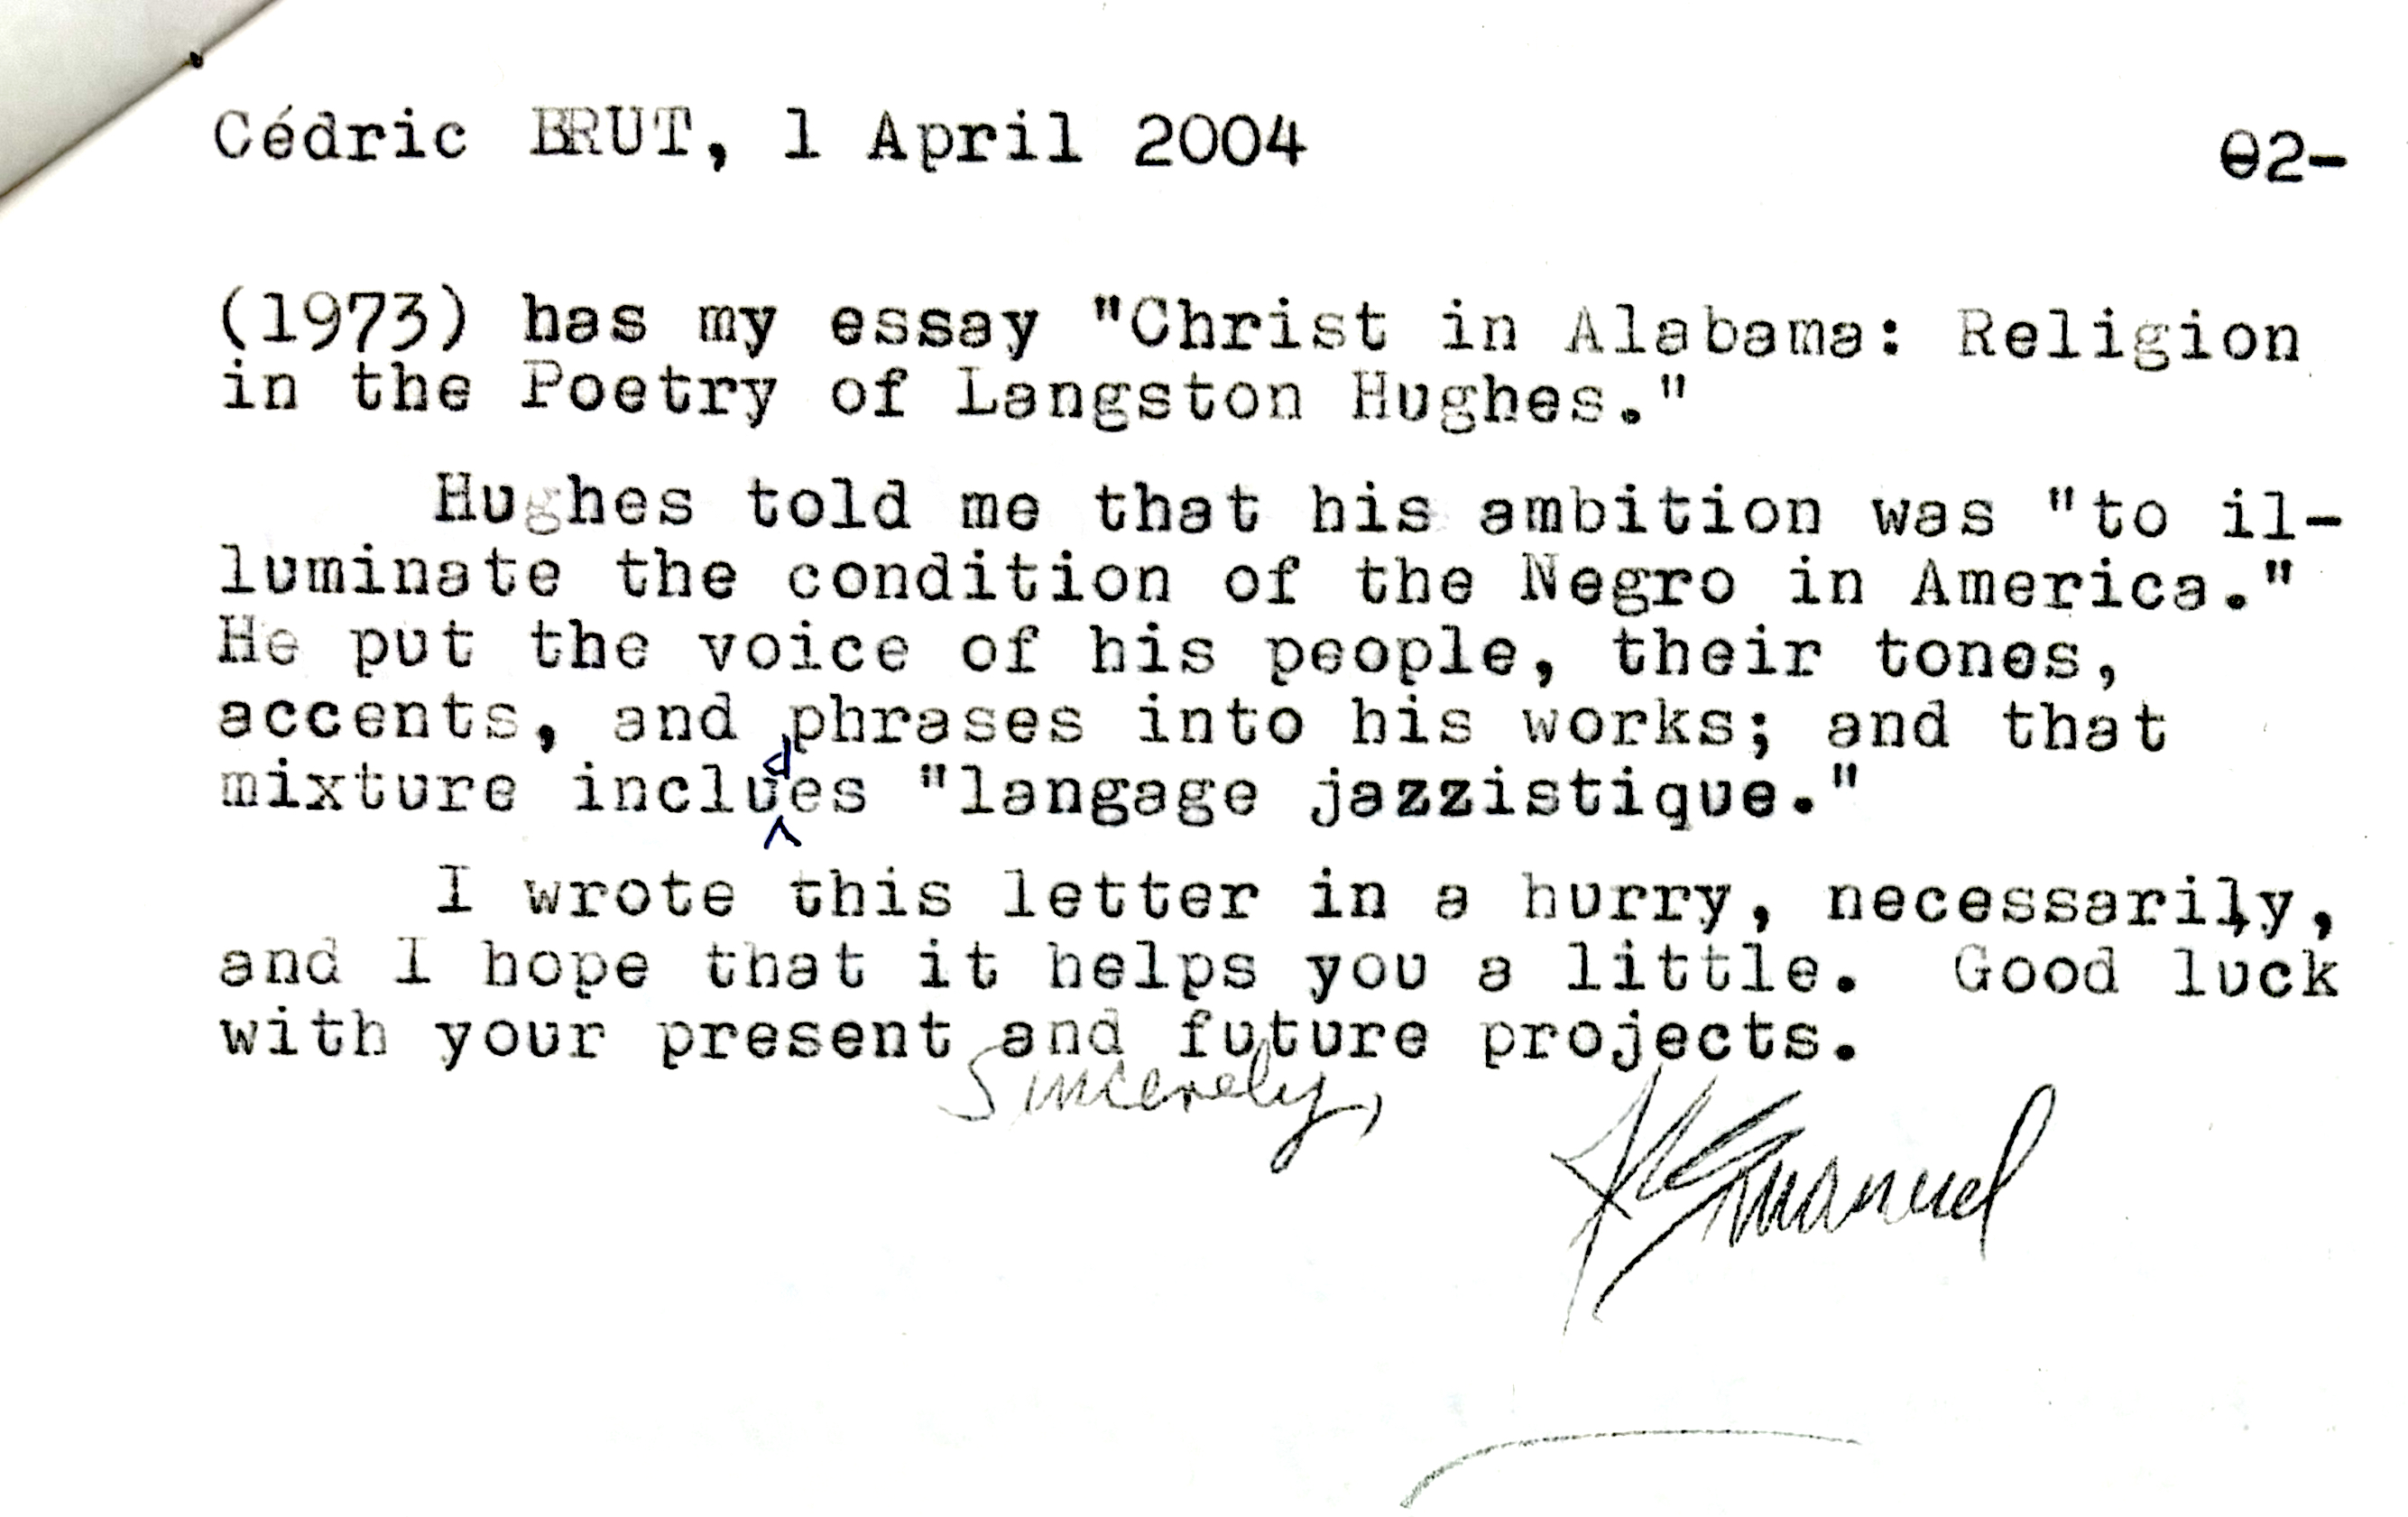 Cédric BRUT, 1 April 2004 02-
(1973) has my essay "Christ in Alabama: Religion
in the Poetry of Langston Hughes."
Hughes told me that his ambition was "to il-
luminate the condition of the Negro in America."
He put the voice of his people, their tones,
accents, and phrases into his works; and that
mixture includes "langage jazzistique."
I wrote this letter in a hurry, necessarily,
and I hope that it helps you a little. Good luck
with your present and future projects.
Sincerely,
JAEmanuel